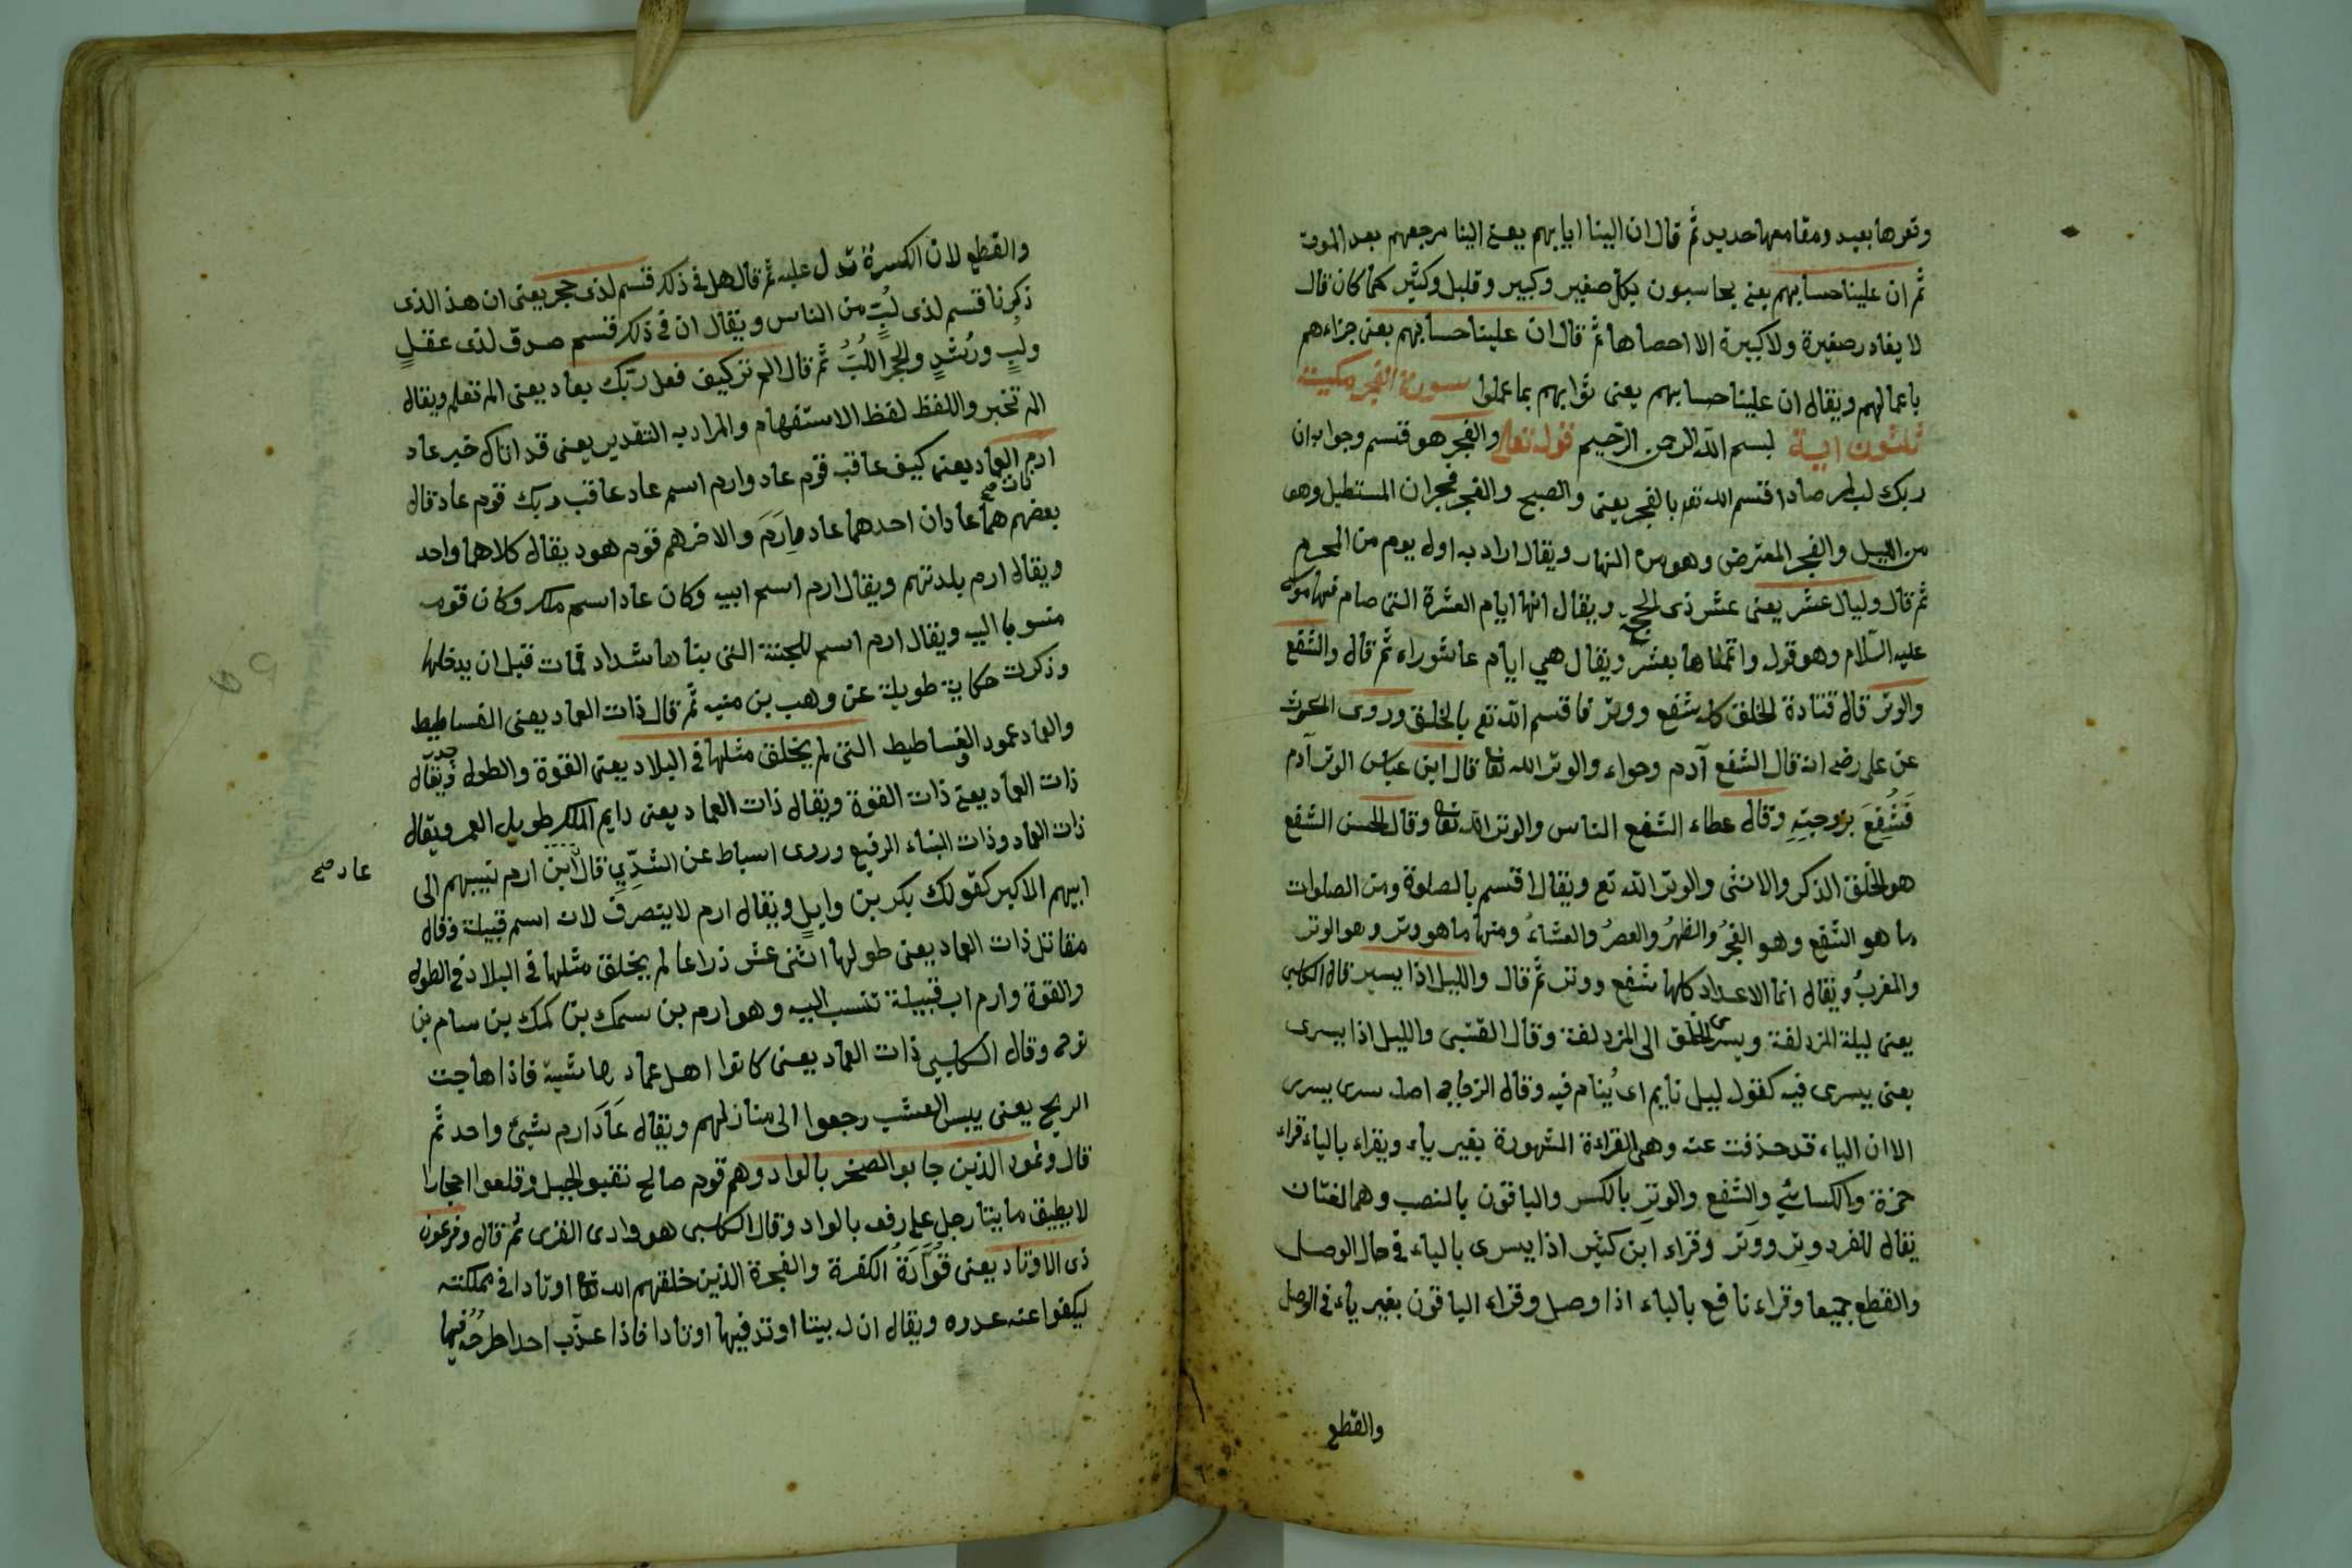 وقعرها بعيد ومقامعها حديد ثم قال ان الينا ايابهم يعنى الينا مرجعهم بعد الموت
ثم ان علينا حسابهم يعنى يحاسبون بكل صغير وكبير وقليل وكثير كما كان قال
لا يغادر صغيرة ولا كبيرة الا احصاها ثم قال ان علينا حسابهم يعنى جزاءهم
باعمالهم ويقال ان علينا حسابهم يعنى ثوابهم بما عملوا سورة الفجر مكية
ثلثون اية بسم الله الرحمن الرحيم قوله تعالى والفجر هو قسم وجوابه ان
ربك لبالمرصاد اقسم الله تعه بالفجر يعنى والصبح والفجر فجران المستطيل وهو
من الليل والفجر المعترض وهو من النهار ويقال اراد به اول يوم من المحرم
ثم قال وليال عشر يعنى عشر ذى الحجة ويقال انها ايام العشرة التى صام فيها موسى
عليه السلام وهو قوله واتممناها بعشر ويقال هي ايام عاشوراء ثم قال والشفع
والوتر قال قتادة الخلق كله شفع ووتر فاقسم الله تع بالخلق وروى الحرث
عن على رضى انه قال الشفع آدم وحواء والوتر الله تعا قال ابن عباس الوتر آدم
فَشُفِعَ بزوجتِهِ وقال عطاء الشفع الناس والوتر الله تعا وقال الحسن الشفع
هو الخلق الذكر والانثى والوتر الله تع ويقال اقسم بالصلوة ومن الصلوات
ما هو الشفع وهو الفجرُ والظهرُ والعصرُ والعشاءُ ومنها ما هو وتر وهو الوتر
والمغربُ ويقال انما الاعداد كلها شفع ووتر ثم قال والليل اذا يسر قال الكلبى
يعنى ليلة المزدلفة ويسرى الخلق الى المزدلفة وقال القتبى والليل اذا يسرى
يعنى يسرى فيه كقول ليل نايم اى يُنام فيه وقال الزجاج اصله سرى يسرى
الا ان الياء قد حذفت عنه وهى القراءة المشهورة بغير ياء ويقراء بالياء قراء
حمزة والكسائي والشفع والوتر بالكسر والباقون بالنصب وهما لغتان
يقال للفرد وِتر ووَتر وقراء ابن كثير اذا يسرى بالياء فى حال الوصل
والقطع جميعا وقراء نافع بالياء اذا وصل وقراء الباقون بغير ياء فى الوصل
والقطع
والقطع لان الكسرة تدل عليه ثم قال هل فى ذلك قسم لذى حجر يعنى ان هذا الذى
ذكرنا قسم لذى لبٍ من الناس ويقال ان فى ذلك قسم صدق لذى عقلٍ
ولبٍ ورُشدٍ والحجر اللُبُّ ثم قال الم تر كيف فعل ربك بعاد يعنى الم تعلم ويقال
الم تخبر واللفظ لفظ الاستفهام والمراد به التقدير يعنى قد اتاك خبر عاد
ارم ذات العماد يعنى كيف عاقب قوم عاد وارم اسم عاد عاقب ربك قوم عاد قال
بعضهم هما عادان احدهما عاد وارَمَ والاخر هم قوم هود يقال كلاهما واحد
ويقال ارم بلدتهم ويقال ارم اسم ابيه وكان عاد اسم ملك وكان قومه
منسوبا اليه ويقال ارم اسم للجنة التى بناها شداد فمات قبل ان يدخلها
وذكرت حكاية طويلة عن وهب بن منبه ثم قال ذات العماد يعنى الفساطيط
والعماد عمود الفساطيط التى لم يخلق مثلها فى البلاد يعنى القوة والطول ويقال
ذات العماد يعنى ذات القوة ويقال ذات العماد يعنى دايم الملك طويل العمر ويقال
ذات العماد وذات البناء الرفيع وروى اسباط عن السُّدِّي قال ابن ارم نسبهم الى
عاد صح
ابيهم الاكبر كقولك بكر بن وايل ويقال ارم لا يتصرف لانه اسم قبيلة وقال
مقاتل ذات العماد يعنى طولها اثنى عشر ذراعا لم يخلق مثلها فى البلاد فى الطول
والقوة وارم اب قبيلة تنسب اليه وهو ارم بن سمك بن كمك بن سام بن
نوح وقال الكلبى ذات العماد يعنى كانوا اهل عماد وماشية فاذا هاجت
الريح يعنى يبس العشب رجعوا الى منازلهم ويقال عَادَ ارم شيئ واحد ثم
قال وثمود الذين جابوا الصخر بالواد وهم قوم صالح نقبو الجبل وقلعوا احجارا
لا يطيق مايتا رجل على رفعه بالواد وقال الكلبى هو وادى القرى ثم قال وفرعون
ذى الاوتاد يعنى الكفرة والفجرة الذين خلقهم الله تعا اوتادا فى مملكته
ليكفوا عنه عدوه ويقال ان له بيتا اوتد فيها اوتادا فاذا عذّب احدا طرحُه فيها